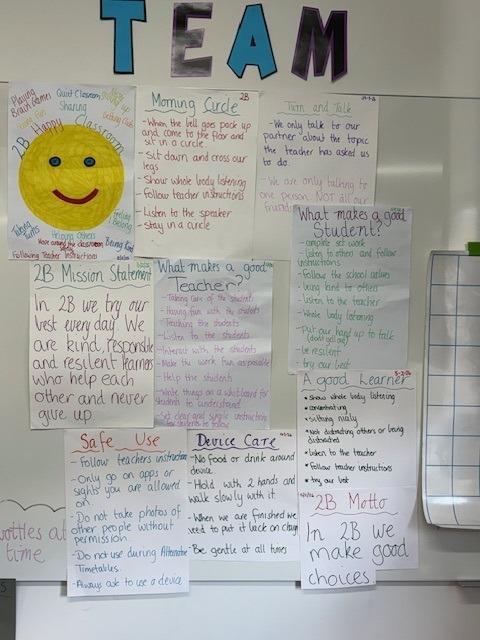 TEAM
Playing
Brain Games
Quiet Classroom
Sharing
2B Happy Classroom
Taking
turns
Helping others
Being kind
Following Teacher Instructions
Morning Circle
2B
- When the bell goes pack up
and come to the floor and
sit in a circle
- Sit down and cross our
legs
- Show whole body listening
- Follow teacher instructions
- Listen to the speaker
- Stay in a circle
Turn and Talk
- We only talk to our
partner about the topic
the teacher has asked us
to do.
- We are only talking to
one person NOT all our
friends
What makes a good
Student?
- complete set work
- listen to others and follow
instructions
- Follow the school values
- being kind to others
- listen to the teacher
- Whole body listening
- Put our hand up to talk
(don't yell out)
- be resilient
- try our best
2B Mission Statement
In 2B we try our
best every day. We
are kind, responsible
and resilent learners
who help each
other and never
give up.
What makes a good
Teacher?
- Taking care of the students
- Having fun with the students
- Teaching the students
- Listen to the students
- Interact with the students
- Make the work fun as possible
- Help the students
- Write things on a whiteboard for
students to understand
- Set clear and simple instructions
for students to follow
A good Learner
* Show whole body listening
* concentrating
* sitting nicely
* Not distracting others or being
distracted
* listen to the teacher
* Follow teacher instructions
* try our best
Safe Use
- Follow teachers instruction
- Only go on apps or
sights you are allowed
on
- Do not take photos of
other people without
permission.
- Do not use during Alternate
Timetables.
- Always ask to use a device
Device Care
- No food or drink around
device.
- Hold with 2 hands and
walk slowly with it
- When we are finished we
need to put it back on charge
- Be gentle at all times
2B Motto
In 2B we
make good
choices.
bottles at
time